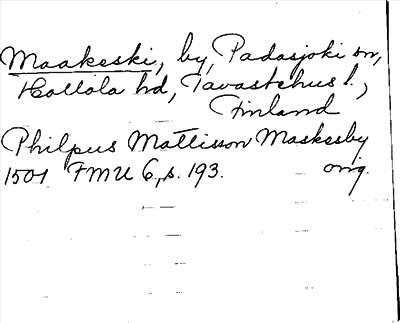 Maakeski, by, Padasjoki sn,
Hollola hd, Tavastehus l.,
Finland
Philpus Mattisson Maskesby
1501 FMU 6, s. 193. orig.